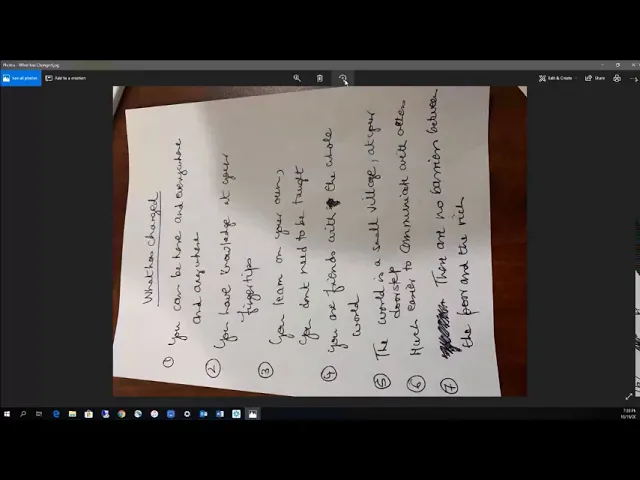 Photos - What has Changed.jpg
See all photos
Add to a creation
Edit & Create
Share
What has changed
① You can be here and everywhere
and anywhere
② You have knowledge at your
fingertips
③ You learn on your own,
You dont need to be taught
④ You are friends with the whole
world
⑤ The world is a small village, at your
doorstep
⑥ Much easier to communicate with others
⑦ There are no barriers between
the poor and the rich